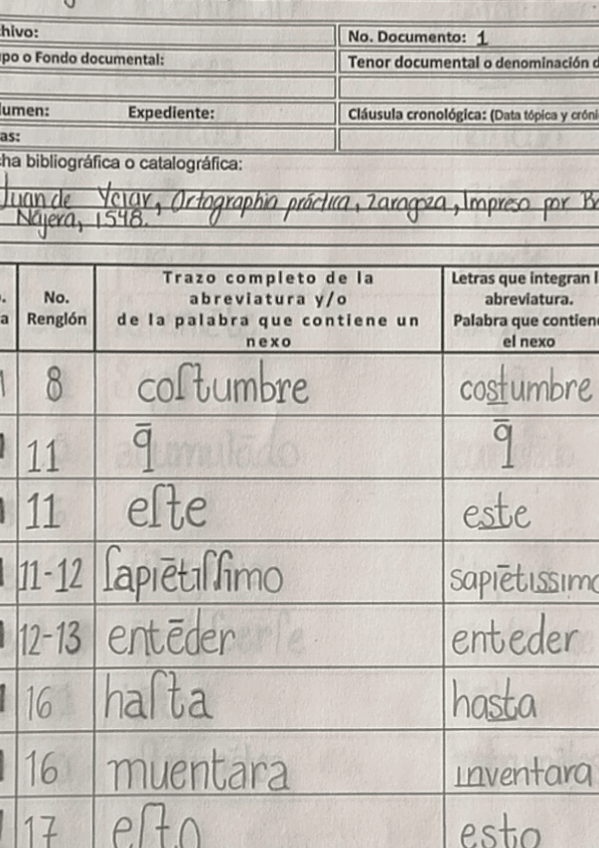 chivo:
No. Documento: 1
upo o Fondo documental:
Tenor documental o denominación d
lumen: Expediente:
Cláusula cronológica: (Data tópica y cróni
as:
cha bibliográfica o catalográfica:
Juan de Yciar, Ortographia práctica, Zaragoza, Impreso por Ba
Nájera, 1548.
No. Renglón
Trazo completo de la
abreviatura y/o
de la palabra que contiene un
nexo
Letras que integran l
abreviatura.
Palabra que contien
el nexo
8 coſtumbre costumbre
11 q̄ q̄
11 eſte este
11-12 ſapiētiſſimo sapiētissimo
12-13 entēder enteder
16 haſta hasta
16 muentara inventara
17 eſto esto